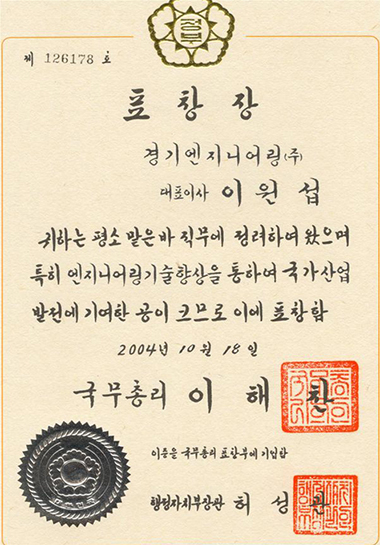 정부
제 126178 호
표창장
경기엔지니어링(주)
대표이사 이원섭
귀하는 평소 맡은바 직무에 정려하여 왔으며
특히 엔지니어링기술향상을 통하여 국가산업
발전에 기여한 공이 크므로 이에 표창함
2004년 10월 18일
국무총리 이해찬
이증을 국무총리 표창부에 기입함
행정자치부장관 허성관